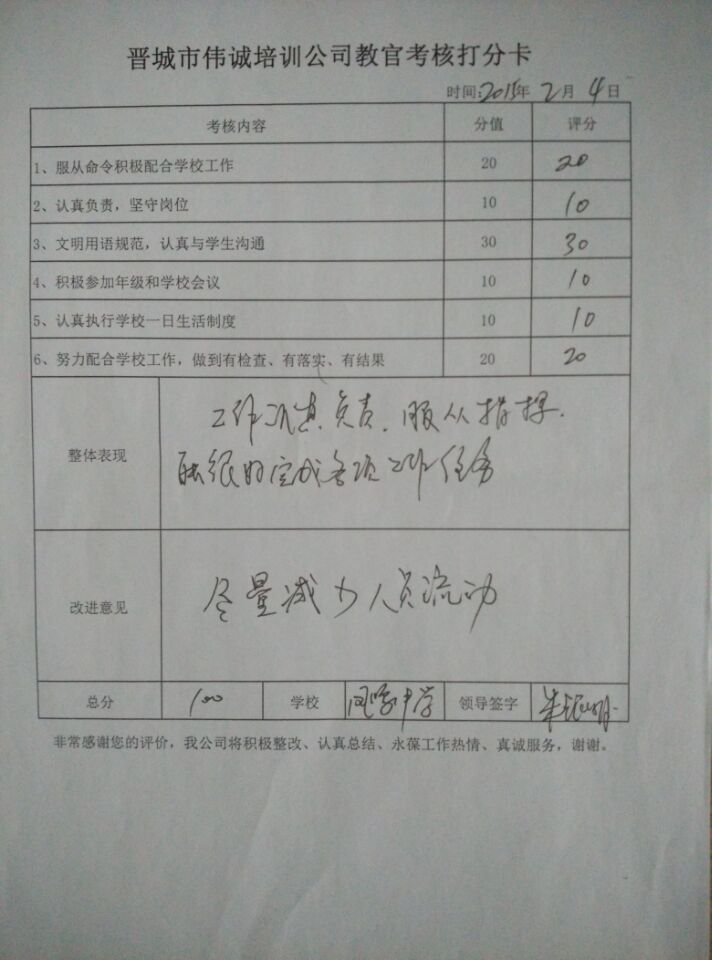 晋城市伟诚培训公司教官考核打分卡
时间:2015年 2月 4日
考核内容 分值 评分
1、服从命令积极配合学校工作 20 20
2、认真负责，坚守岗位 10 10
3、文明用语规范，认真与学生沟通 30 30
4、积极参加年级和学校会议 10 10
5、认真执行学校一日生活制度 10 10
6、努力配合学校工作，做到有检查、有落实、有结果 20 20
整体表现
工作认真负责，服从指挥.
能很好完成各项工作任务
改进意见
尽量减少人员流动
总分 100 学校 凤鸣中学 领导签字
非常感谢您的评价，我公司将积极整改、认真总结、永葆工作热情、真诚服务，谢谢。